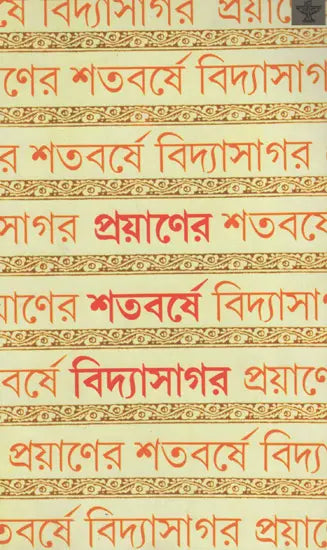 র্ষে বিদ্যাসাগর প্রয়াণে
ণের শতবর্ষে বিদ্যাসাগ
র শতবর্ষে বিদ্যাসাগর
সাগর প্রয়াণের শতবর্ষে
য়াণের শতবর্ষে বিদ্যাসা
বর্ষে বিদ্যাসাগর প্রয়াণে
প্রয়াণের শতবর্ষে বিদ্যা
তবর্ষে বিদ্যাসাগর প্রয়াণে